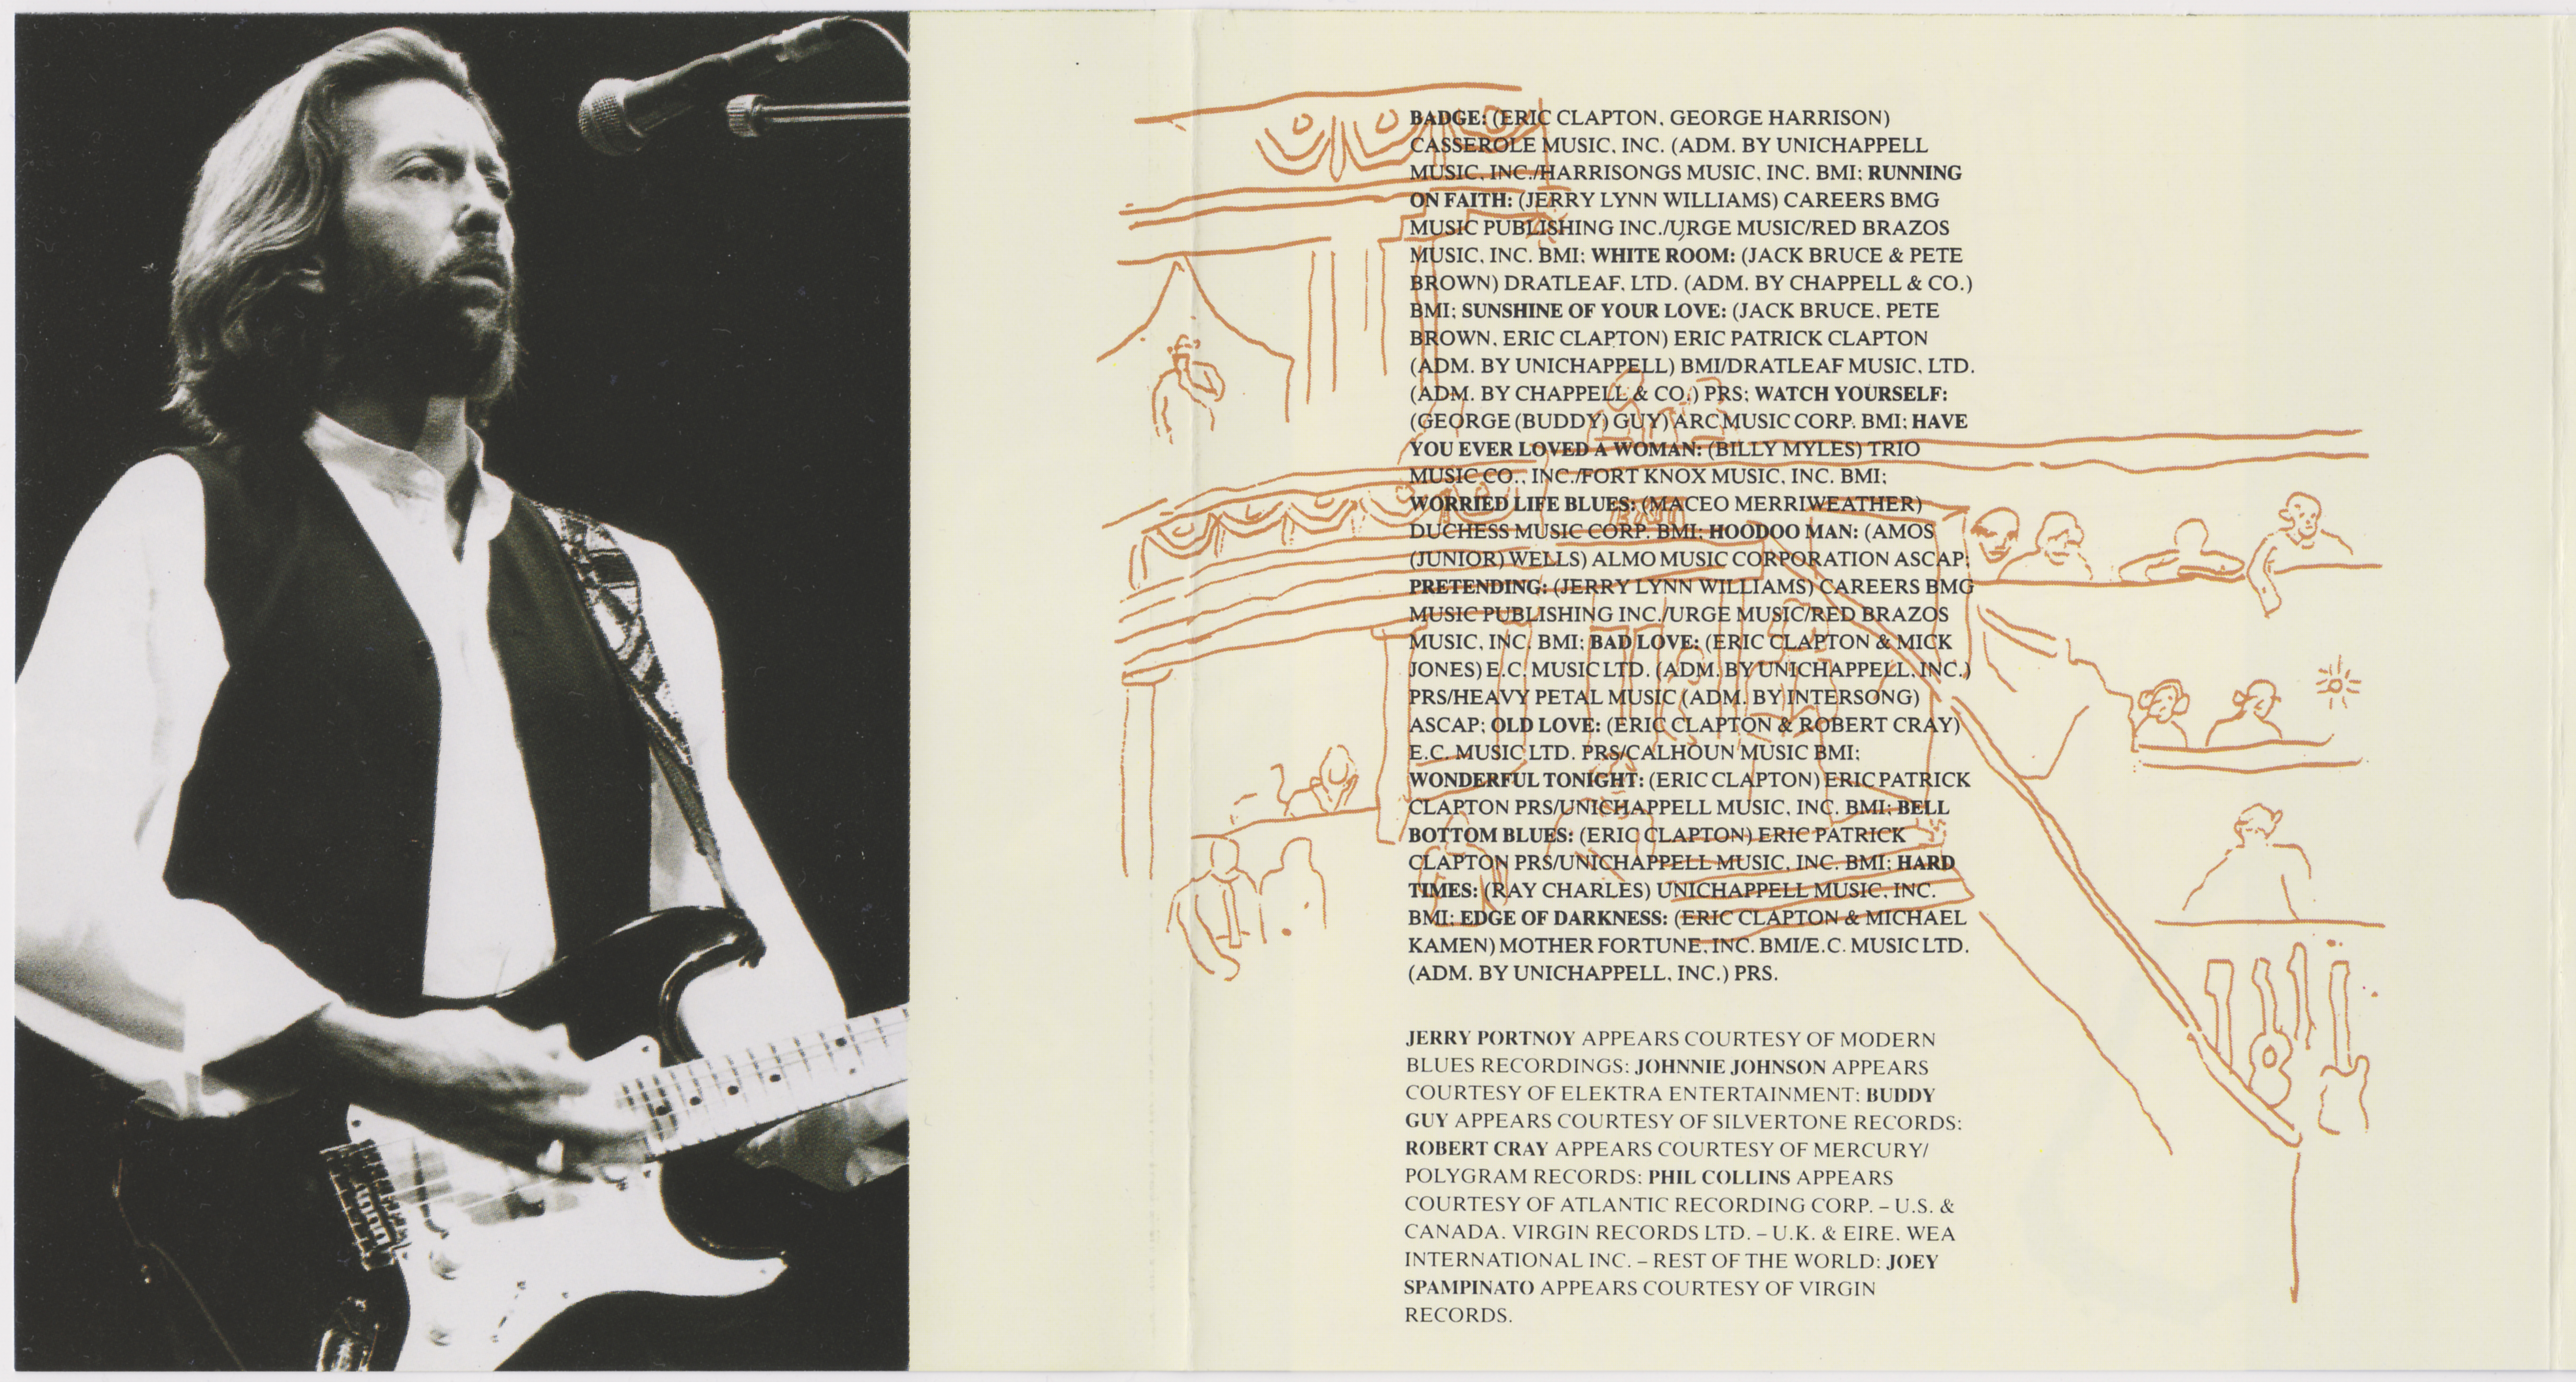 BADGE: (ERIC CLAPTON, GEORGE HARRISON)
CASSEROLE MUSIC, INC. (ADM. BY UNICHAPPELL
MUSIC, INC./HARRISONGS MUSIC, INC. BMI; RUNNING
ON FAITH: (JERRY LYNN WILLIAMS) CAREERS BMG
MUSIC PUBLISHING INC./URGE MUSIC/RED BRAZOS
MUSIC, INC. BMI; WHITE ROOM: (JACK BRUCE & PETE
BROWN) DRATLEAF, LTD. (ADM. BY CHAPPELL & CO.)
BMI; SUNSHINE OF YOUR LOVE: (JACK BRUCE, PETE
BROWN, ERIC CLAPTON) ERIC PATRICK CLAPTON
(ADM. BY UNICHAPPELL) BMI/DRATLEAF MUSIC, LTD.
(ADM. BY CHAPPELL & CO.) PRS; WATCH YOURSELF:
(GEORGE (BUDDY) GUY) ARC MUSIC CORP. BMI; HAVE
YOU EVER LOVED A WOMAN: (BILLY MYLES) TRIO
MUSIC CO., INC./FORT KNOX MUSIC, INC. BMI;
WORRIED LIFE BLUES: (MACEO MERRIWEATHER)
EXIT
DUCHESS MUSIC CORP. BMI; HOODOO MAN: (AMOS
(JUNIOR) WELLS) ALMO MUSIC CORPORATION ASCAP;
PRETENDING: (JERRY LYNN WILLIAMS) CAREERS BMG
MUSIC PUBLISHING INC./URGE MUSIC/RED BRAZOS
MUSIC, INC. BMI; BAD LOVE: (ERIC CLAPTON & MICK
JONES) E.C. MUSIC LTD. (ADM. BY UNICHAPPELL, INC.)
PRS/HEAVY PETAL MUSIC (ADM. BY INTERSONG)
ASCAP; OLD LOVE: (ERIC CLAPTON & ROBERT CRAY)
E.C. MUSIC LTD. PRS/CALHOUN MUSIC BMI;
WONDERFUL TONIGHT: (ERIC CLAPTON) ERIC PATRICK
CLAPTON PRS/UNICHAPPELL MUSIC, INC. BMI; BELL
BOTTOM BLUES: (ERIC CLAPTON) ERIC PATRICK
CLAPTON PRS/UNICHAPPELL MUSIC, INC. BMI; HARD
TIMES: (RAY CHARLES) UNICHAPPELL MUSIC, INC.
BMI; EDGE OF DARKNESS: (ERIC CLAPTON & MICHAEL
KAMEN) MOTHER FORTUNE, INC. BMI/E.C. MUSIC LTD.
(ADM. BY UNICHAPPELL, INC.) PRS.
JERRY PORTNOY APPEARS COURTESY OF MODERN
BLUES RECORDINGS; JOHNNIE JOHNSON APPEARS
COURTESY OF ELEKTRA ENTERTAINMENT; BUDDY
GUY APPEARS COURTESY OF SILVERTONE RECORDS;
ROBERT CRAY APPEARS COURTESY OF MERCURY/
POLYGRAM RECORDS; PHIL COLLINS APPEARS
COURTESY OF ATLANTIC RECORDING CORP. – U.S. &
CANADA. VIRGIN RECORDS LTD. – U.K. & EIRE. WEA
INTERNATIONAL INC. – REST OF THE WORLD; JOEY
SPAMPINATO APPEARS COURTESY OF VIRGIN
RECORDS.